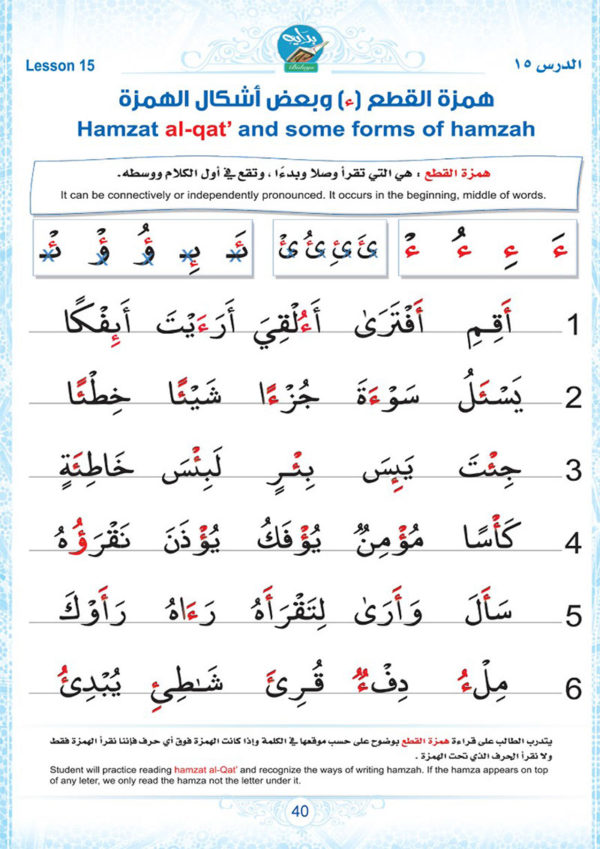 Lesson 15
بداية
Bidaya
الدرس ١٥
همزة القطع (ء) وبعض أشكال الهمزة
Hamzat al-qat’ and some forms of hamzah
همزة القطع : هي التي تقرأ وصلا وبدءًا ، وتقع في أول الكلام ووسطه.
It can be connectively or independently pronounced. It occurs in the beginning, middle of words.
ءَ ءِ ءُ ءْ
ئَ ئِ ئُ ئْ
ئَـ ـئِـ ؤُ ؤْ ئْـ
1 أَقِمِ أَفْتَرَىٰ أَءُلْقِيَ أَرَءَيْتَ أَئِفْكًا
2 يَسْـَٔلُ سَوْءَةَ جُزْءًا شَيْـًٔا خِطْـًٔا
3 جِئْتَ يَئِسَ بِئْرٍ لَبِئْسَ خَاطِئَةٍ
4 كَأْسًا مُؤْمِنٌ يُؤْفَكُ يُؤْذَنَ نَقْرَؤُهُ
5 سَأَلَ وَأَرَىٰ لِتَقْرَأَهُ رَءَاهُ رَأَوْكَ
6 مِلْءُ دِفْءٌ قُرِئَ شَـٰطِئِ يُبْدِئُ
يتدرب الطالب على قراءة همزة القطع بوضوح على حسب موقعها في الكلمة وإذا كانت الهمزة فوق أي حرف فإننا نقرأ الهمزة فقط
ولا نقرأ الحرف الذي تحت الهمزة .
Student will practice reading hamzat al-Qat’ and recognize the ways of writing hamzah. If the hamza appears on top
of any leter, we only read the hamza not the letter under it.
40